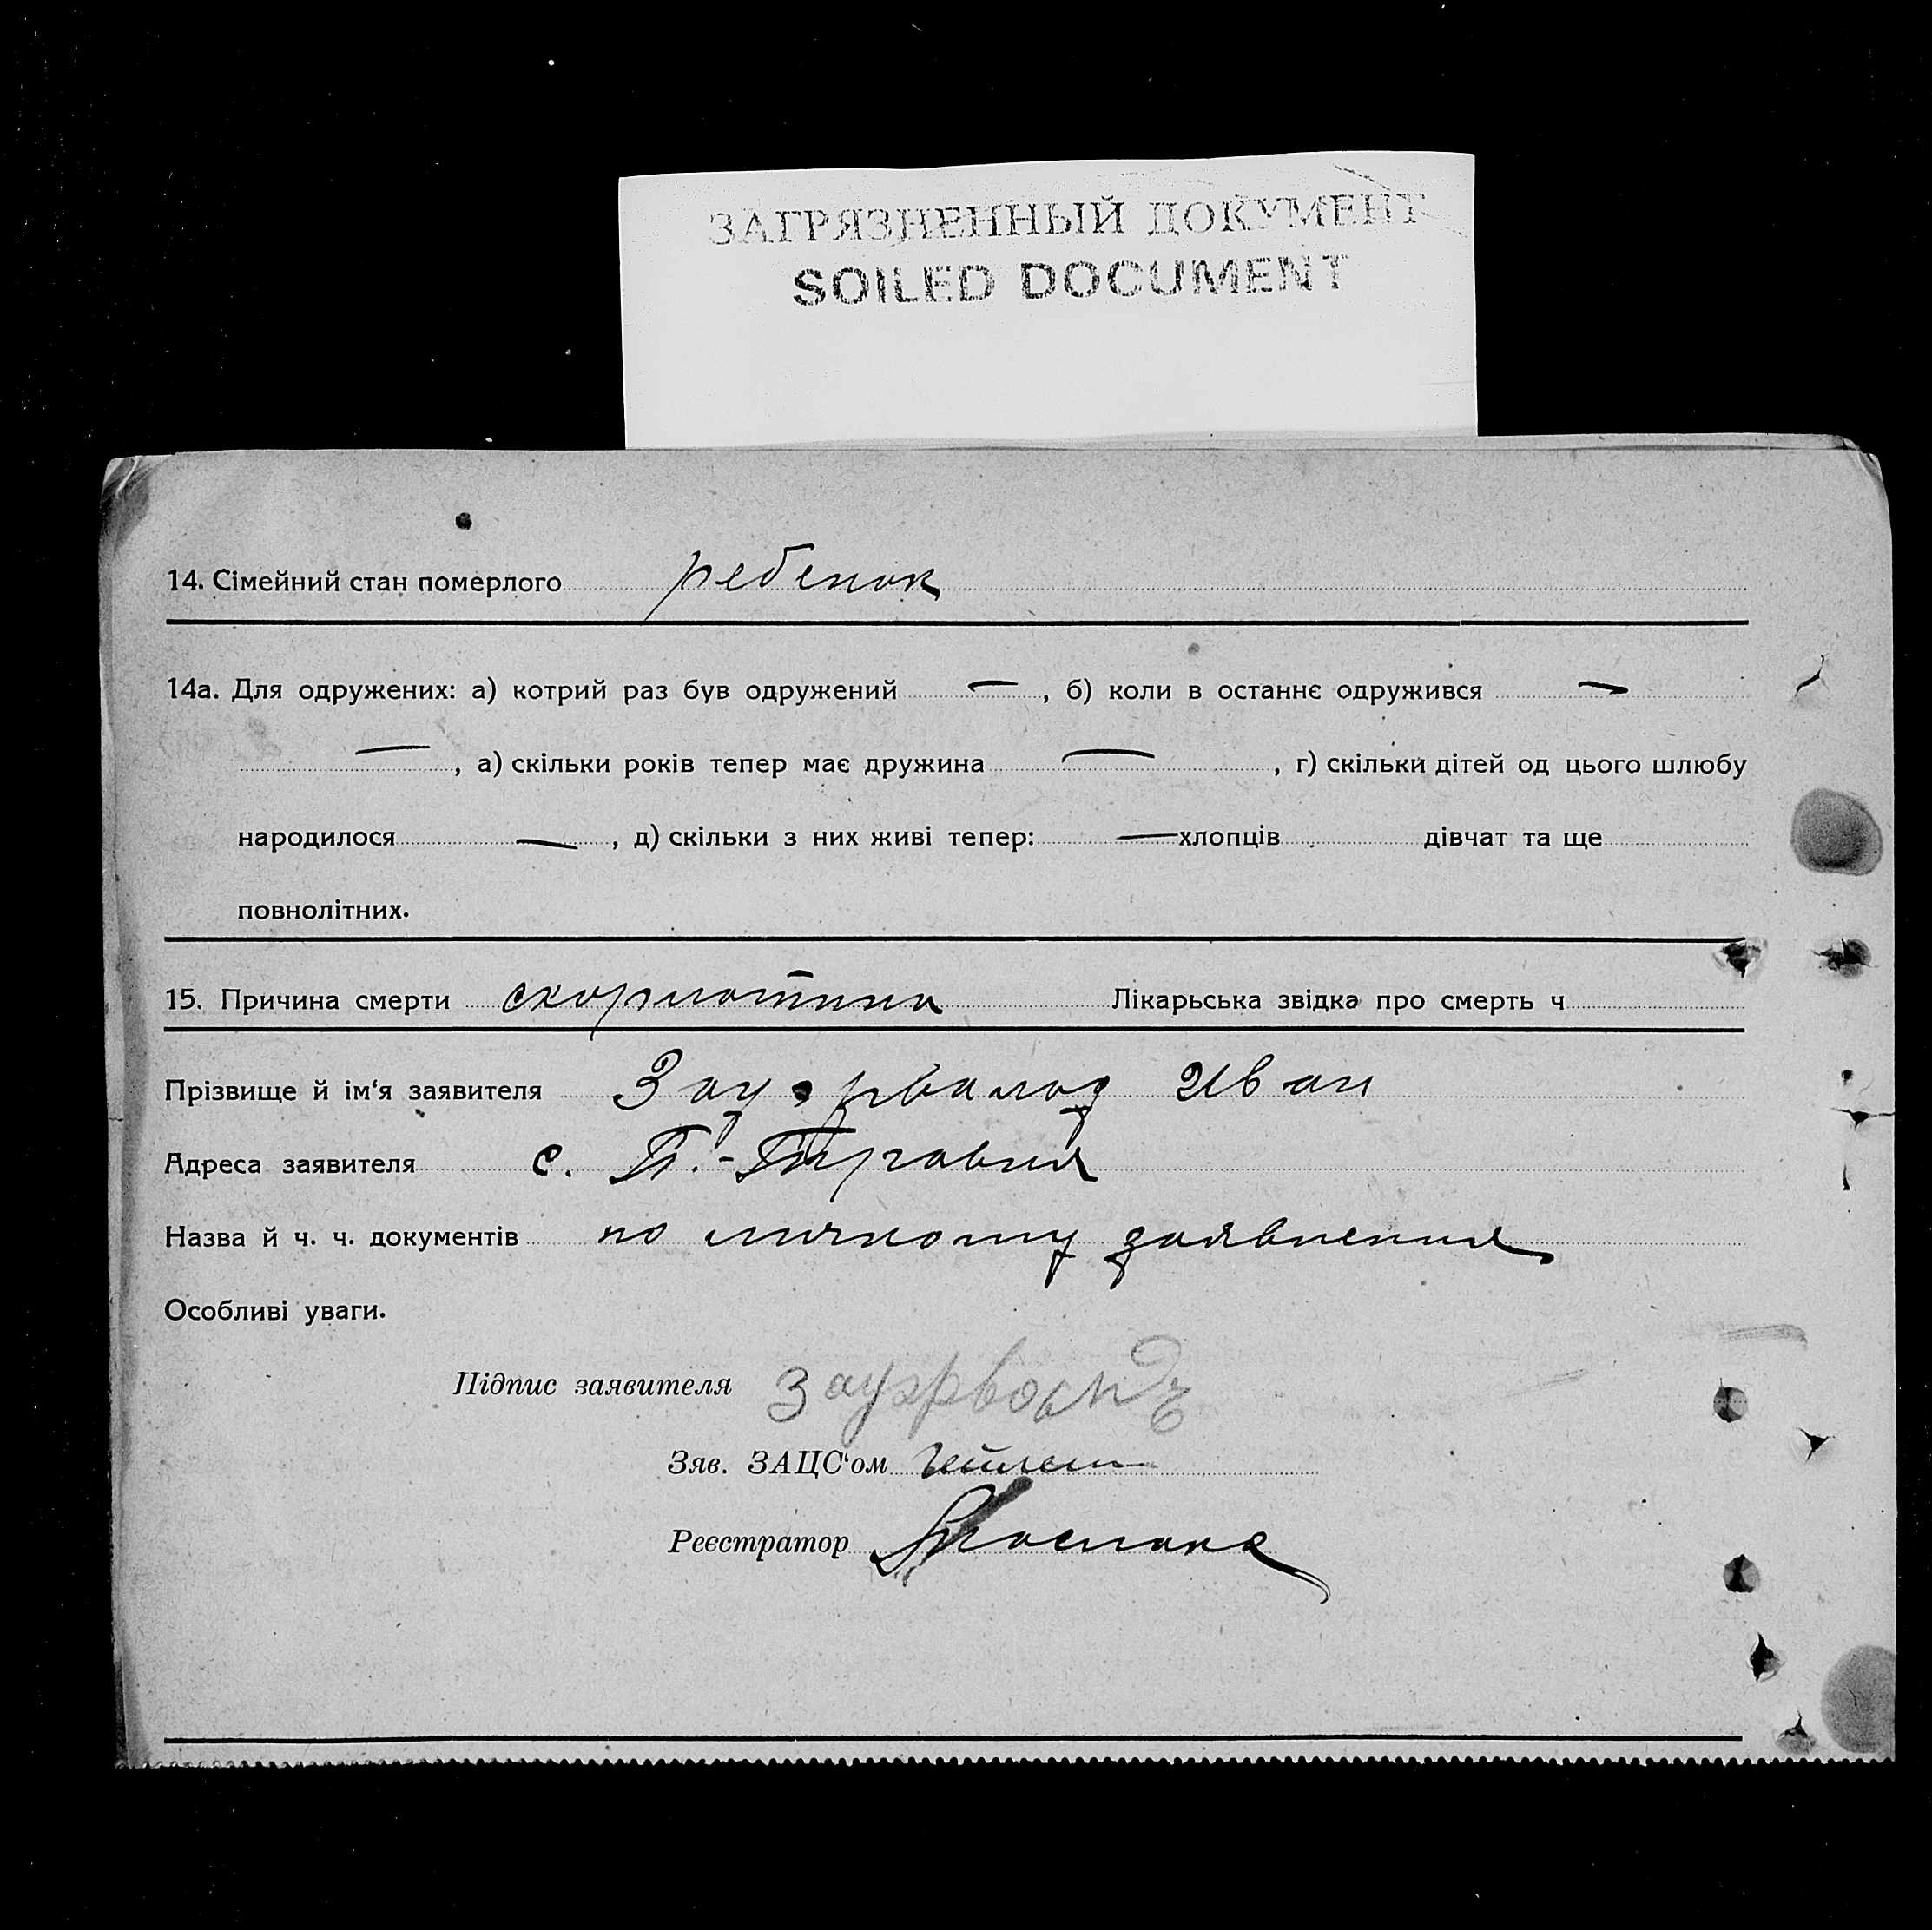 ЗАГРЯЗНЕННЫЙ ДОКУМЕНТ
SOILED DOCUMENT
14. Сімейний стан померлого ребенок
14а. Для одружених: а) котрий раз був одружений —, б) коли в останнє одружився —
—, а) скільки років тепер має дружина —, г) скільки дітей од цього шлюбу
народилося —, д) скільки з них живі тепер: — хлопців дівчат та ще
повнолітних.
15. Причина смерти скорлотина Лікарьська звідка про смерть ч
Прізвище й ім‘я заявителя Зауэрвалод Иван
Адреса заявителя с. П.-
Назва й ч. ч. документів по личному заявлению
Особливі уваги.
Підпис заявителя
Зяв. ЗАЦС‘ом
Реєстратор